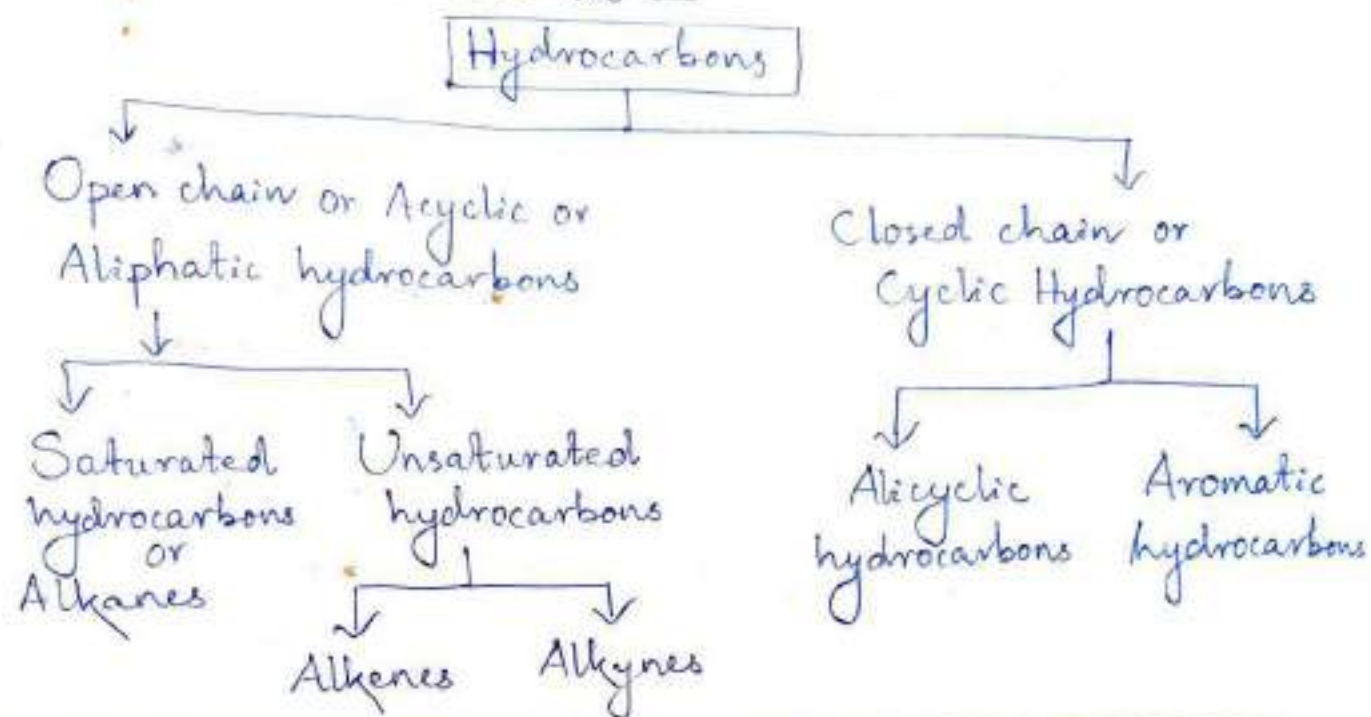 Hydrocarbons
Open chain or Acyclic or
Aliphatic hydrocarbons
Closed chain or
Cyclic Hydrocarbons
Saturated
hydrocarbons
or
Alkanes
Unsaturated
hydrocarbons
Alicyclic
hydrocarbons
Aromatic
hydrocarbons
Alkenes
Alkynes